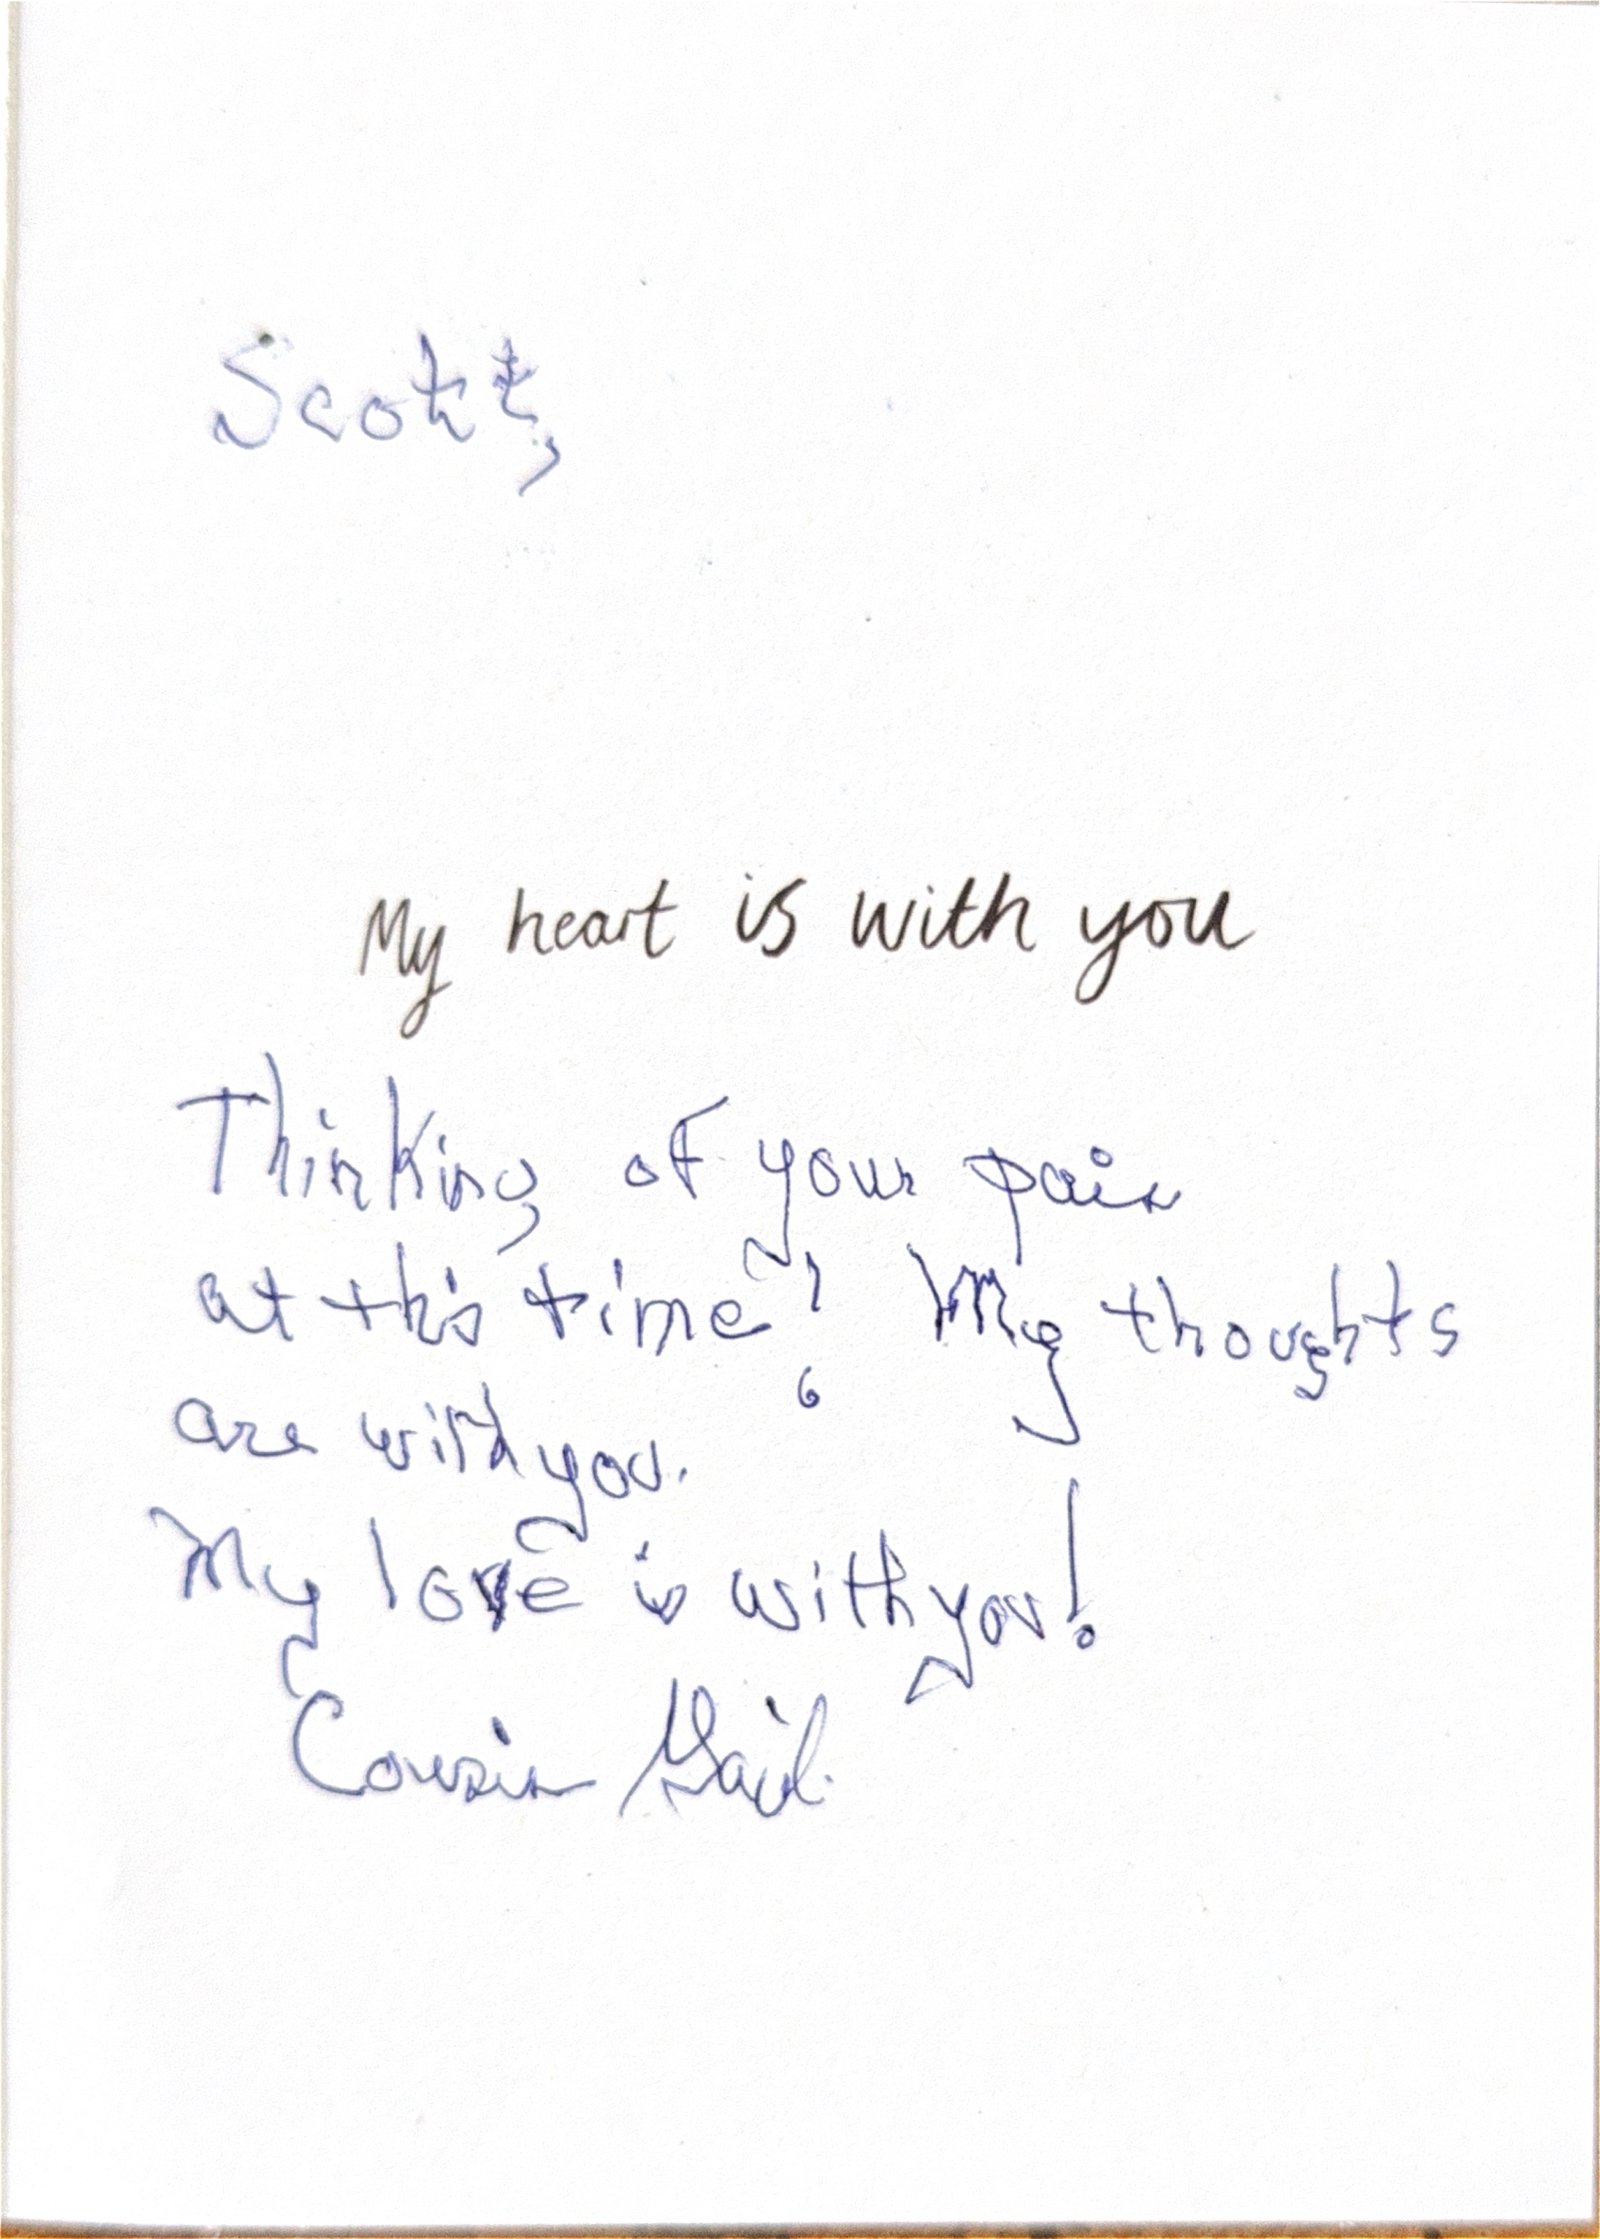 Scott,
My heart is with you
Thinking of your pain
at this time! My thoughts
are with you.
My love is with you!
Cousin Gail.